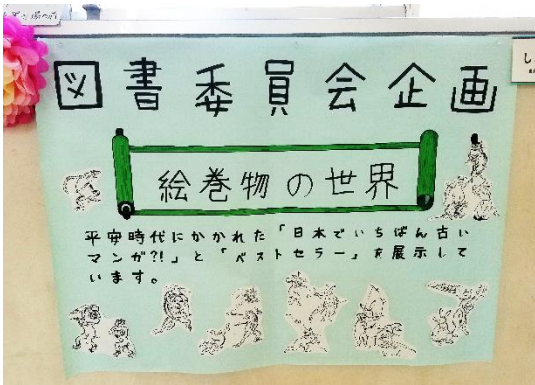 図書委員会企画
絵巻物の世界
平安時代にかかれた「日本でいちばん古い
マンガ?!」と「ベストセラー」を展示して
います。
し